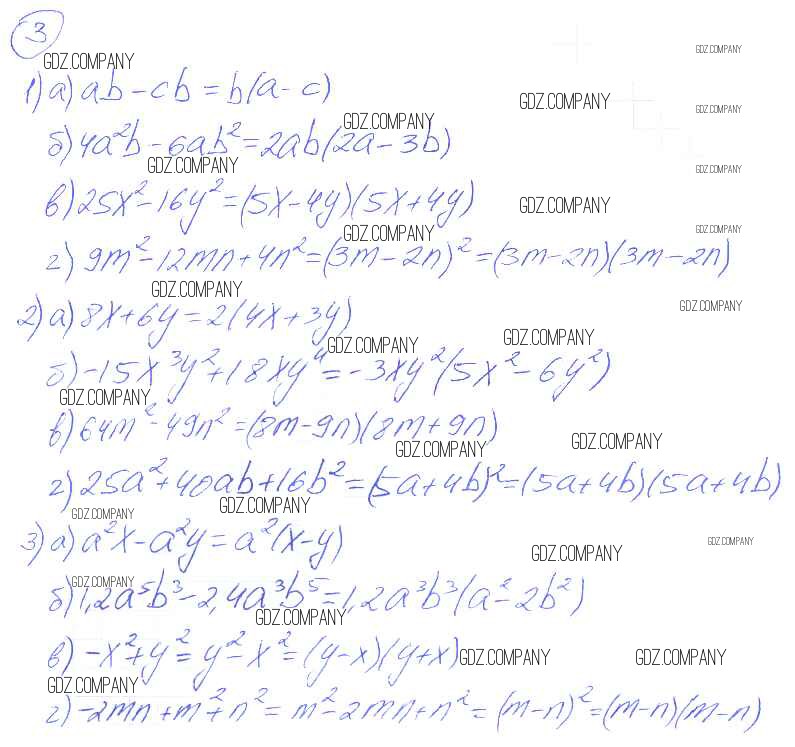 3
GDZ.COMPANY
GDZ.COMPANY
1) а) ab - cb = b(a - c)
GDZ.COMPANY
GDZ.COMPANY
GDZ.COMPANY
б) 4a²b - 6ab² = 2ab(2a - 3b)
GDZ.COMPANY
GDZ.COMPANY
в) 25x² - 16y² = (5x - 4y)(5x + 4y)
GDZ.COMPANY
GDZ.COMPANY
GDZ.COMPANY
г) 9m² - 12mn + 4n² = (3m - 2n)² = (3m - 2n)(3m - 2n)
GDZ.COMPANY
GDZ.COMPANY
2) а) 8x + 6y = 2(4x + 3y)
GDZ.COMPANY
GDZ.COMPANY
б) -15x³y² + 18xy⁴ = -3xy²(5x² - 6y²)
GDZ.COMPANY
в) 64m² - 49n² = (8m - 9n)(8m + 9n)
GDZ.COMPANY
GDZ.COMPANY
г) 25a² + 40ab + 16b² = (5a + 4b)² = (5a + 4b)(5a + 4b)
GDZ.COMPANY
GDZ.COMPANY
3) а) a²x - a²y = a²(x - y)
GDZ.COMPANY
GDZ.COMPANY
GDZ.COMPANY
б) 1,2a⁵b³ - 2,4a³b⁵ = 1,2a³b³(a² - 2b²)
GDZ.COMPANY
в) -x² + y² = y² - x² = (y - x)(y + x)
GDZ.COMPANY
GDZ.COMPANY
GDZ.COMPANY
г) -2mn + m² + n² = m² - 2mn + n² = (m - n)² = (m - n)(m - n)